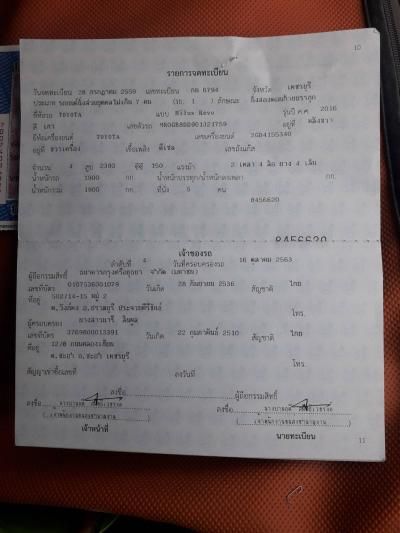 10
รายการจดทะเบียน
วันจดทะเบียน 28 กรกฎาคม 2559 เลขทะเบียน กธ 6794 จังหวัด เพชรบุรี
ประเภท รถยนต์นั่งส่วนบุคคลไม่เกิน 7 คน (รย. 1 ) ลักษณะ นั่งสองตอนท้ายบรรทุก
ยี่ห้อรถ TOYOTA แบบ Hilux Revo รุ่นปี ค.ศ. 2016
สี เทา เลขตัวรถ อยู่ที่
ยี่ห้อเครื่องยนต์ TOYOTA เลขเครื่องยนต์ 2GD4155340
อยู่ที่ ขวาเครื่อง เชื้อเพลิง ดีเซล เลขถังแก๊ส
จำนวน 4 สูบ 2393 ซีซี 150 แรงม้า 2 เพลา 4 ล้อ ยาง 4 เส้น
น้ำหนักรถ 1900 กก. น้ำหนักบรรทุก/น้ำหนักลงเพลา กก.
น้ำหนักรวม 1900 กก. ที่นั่ง 5 คน
8456620
8456620
เจ้าของรถ
ลำดับที่ 4 วันที่ครอบครองรถ 16 ตุลาคม 2563
ผู้ถือกรรมสิทธิ์ ธนาคารกรุงศรีอยุธยา จำกัด (มหาชน)
เลขที่บัตร 0107536001079 วันเกิด 28 กันยายน 2536 สัญชาติ ไทย
ที่อยู่ 502/14-15 หมู่ 2
โทร.
ผู้ครอบครอง
เลขที่บัตร 3769800013391 วันเกิด 22 กุมภาพันธ์ 2510 สัญชาติ ไทย
ที่อยู่ 12/8
ต.ชะอำ อ.ชะอำ เพชรบุรี
โทร.
สัญญาเช่าซื้อเลขที่ ลงวันที่
ลงชื่อ ผู้ถือกรรมสิทธิ์
ลงชื่อ ลงชื่อ
เจ้าหน้าที่ นายทะเบียน
11